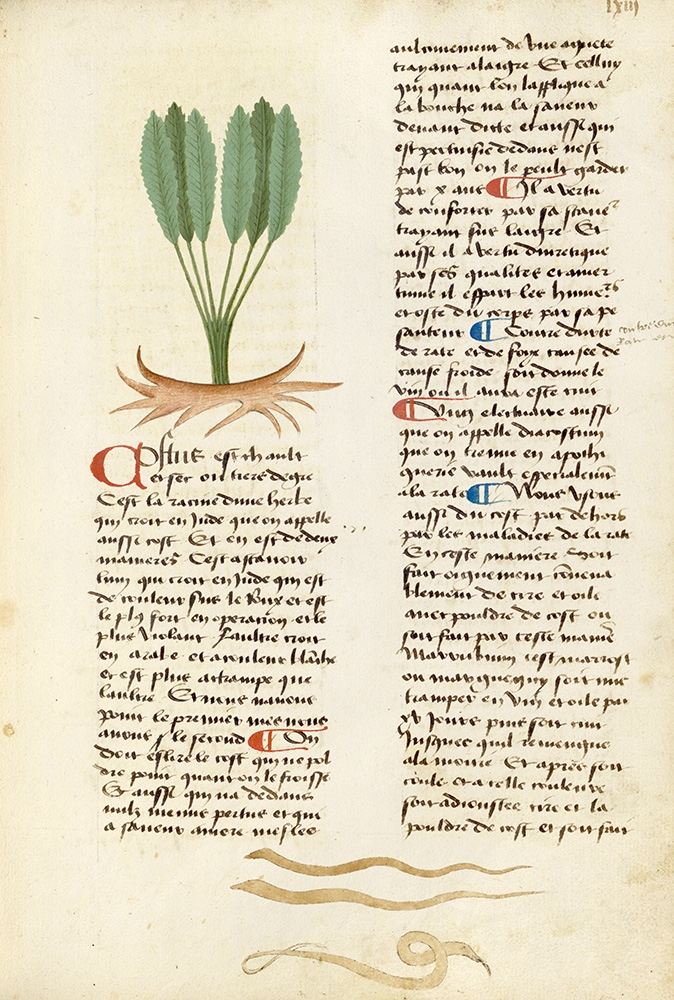 lxiii
Costus est chault
et sec ou tiers degre
Cest la racine dune herbe
qui croit en Jnde que on appelle
aussi cost Et en est de deux
manieres Cest assavoir
lun qui croit en Jnde qui est
de couleur sur le Roux et est
le plus fort en operacion et le
plus violant Laultre croit
en arabe et a couleur blanche
et est plus attrampe que
laultre Et nous navons
point le premier mes nous
avons le second On
doit eslire le cost qui ne pol
dre point quant on le froisse
Et aussi qui na dedans
nulz menus pertus et qui
a saveur amere meslee
de une aguete
trayant a laigre Et celluy
qui quant lon lapplique a
la bouche na la saveur
devant dicte et aussi qui
est pertuisie dedans nest
pas bon on le peult garder
par x ans Jl a vertu
de conforter par sa
trayant sur laigre Et
aussi il a vertu diuretique
par ses qualites et amer
tume il espart les
et oste du corps par sa pe
santeur Contre durte
de rate et de foye causee de
cause froide soit donne le
vin ou il aura este cuit
electuaire aussi
que on appelle diacostum
que on treuve en apothi
querie vault especialement
a la rate Nous usons
aussi du cost par dehors
par les maladies de la rate
En ceste maniere Soit
fait oignement convena
blement de cire et oile
avec pouldre de cost ou
soit fait par ceste maniere
Marrubium cest marrost
ou soit mis
tramper en vin et oile par
xv jours puis soit cuit
jusques quil remengne
a la moitie Et apres soit
coule et a celle couleure
soit adioustee cire et la
pouldre de cost et soit fait